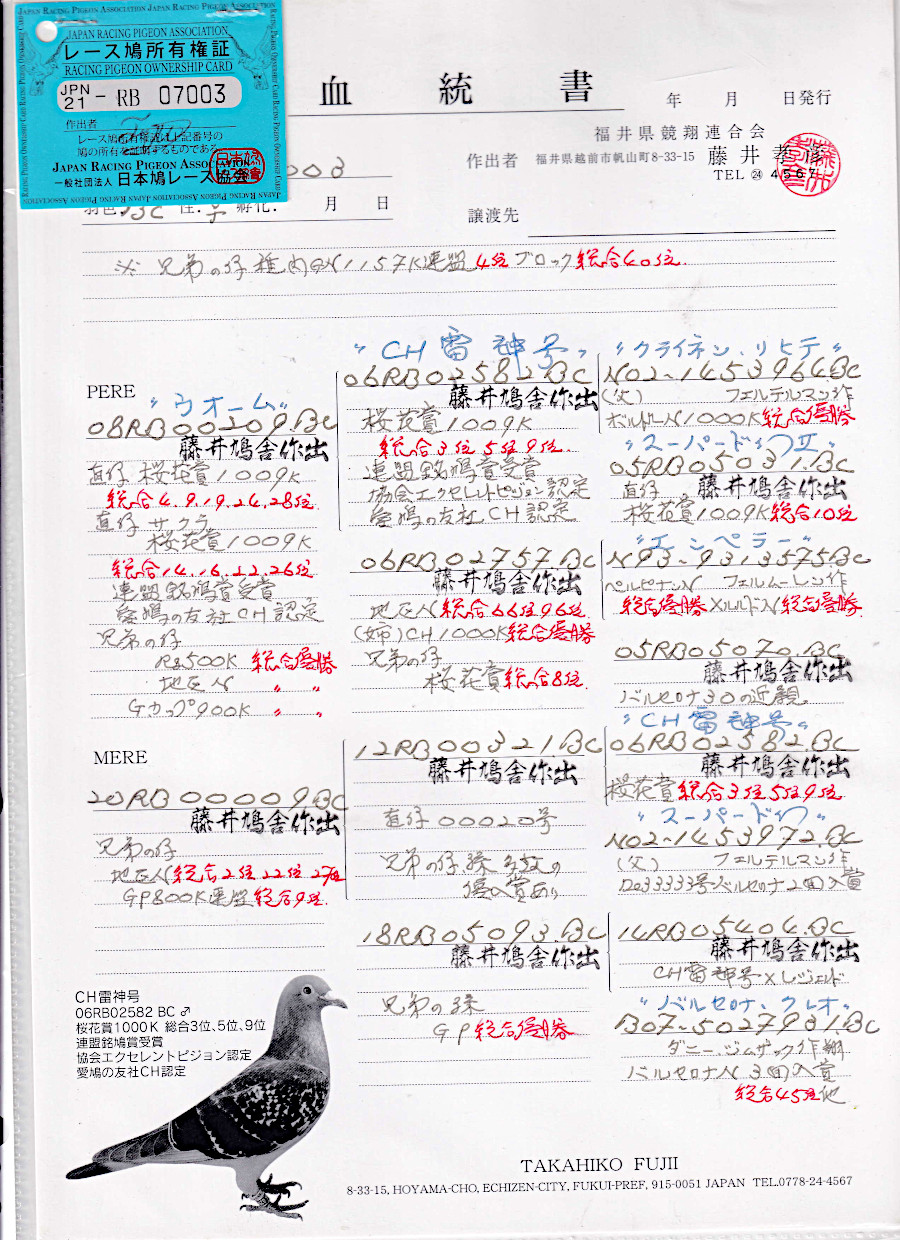 JAPAN RACING PIGEON ASSOCIATION
レース鳩所有権証
RACING PIGEON OWNERSHIP CARD
JPN
21 - RB 07003
作出者
レース鳩所有権証は上記番号の
鳩の所有を証明するものである
JAPAN RACING PIGEON ASSOCIATION
一般社団法人 日本鳩レース協会
血統書
年 月 日発行
福井県競翔連合会
作出者 福井県越前市帆山町8-33-15 藤井孝彦
TEL ㉔ 4567
譲渡先
羽色 BC 性: ♀ 孵化: 月 日
※ 兄弟の仔 稚内GN1157K連盟4位ブロック総合40位
PERE
"ウオーム"
08RB00209.BC
藤井鳩舎作出
直仔 桜花賞1009K
総合4.9.19.24.28位
直仔 サクラ
桜花賞1009K
総合14.16.22.26位
連盟銘鳩賞受賞
愛鳩の友社CH認定
兄弟の仔
Rg500K 総合優勝
地区N 〃 〃
Gカップ900K 〃 〃
"CH雷神号"
06RB02582.BC
藤井鳩舎作出
桜花賞1009K
総合3位5位9位
連盟銘鳩賞受賞
協会エクセレントピジョン認定
愛鳩の友社CH認定
06RB02757.BC
藤井鳩舎作出
地区N総合66位96位
(姉)CH1000K総合優勝
兄弟の仔
桜花賞総合8位
"クライネン.リヒテ"
N02-1453964BC
(父) フェルテルマン作
ボルドーN1000K総合優勝
"スーパードンク II"
05RB05031.BC
直仔 藤井鳩舎作出
桜花賞1009K総合10位
"エンペラー"
N93-9313575BC
ペルピナンN フェルムーレン作
総合優勝×ルルドN総合優勝
05RB05070.BC
藤井鳩舎作出
バルセロナ30の近親
MERE
20RB00009BC
藤井鳩舎作出
兄弟の仔
地区N(総合2位22位27位
GP800K連盟総合9位
12RB00321BC
藤井鳩舎作出
直仔00020号
兄弟の仔.孫 多数の
優入賞あり
18RB05093.BC
藤井鳩舎作出
兄弟の孫
GP総合優勝
"CH雷神号"
06RB02582.BC
藤井鳩舎作出
桜花賞総合3位5位9位
N02-1453972.BC
(父) フェルテルマン作
De33333号バルセロナ2回入賞
14RB05404.BC
藤井鳩舎作出
CH雷神号×レジェンド
"バルセロナ.クレオ"
B07-5027931.BC
ダニー.ジムザック作翔
バルセロナN 3回入賞
総合45位他
CH雷神号
06RB02582 BC ♂
桜花賞1000K 総合3位、5位、9位
連盟銘鳩賞受賞
協会エクセレントピジョン認定
愛鳩の友社CH認定
TAKAHIKO FUJII
8-33-15, HOYAMA-CHO, ECHIZEN-CITY, FUKUI-PREF, 915-0051 JAPAN TEL.0778-24-4567